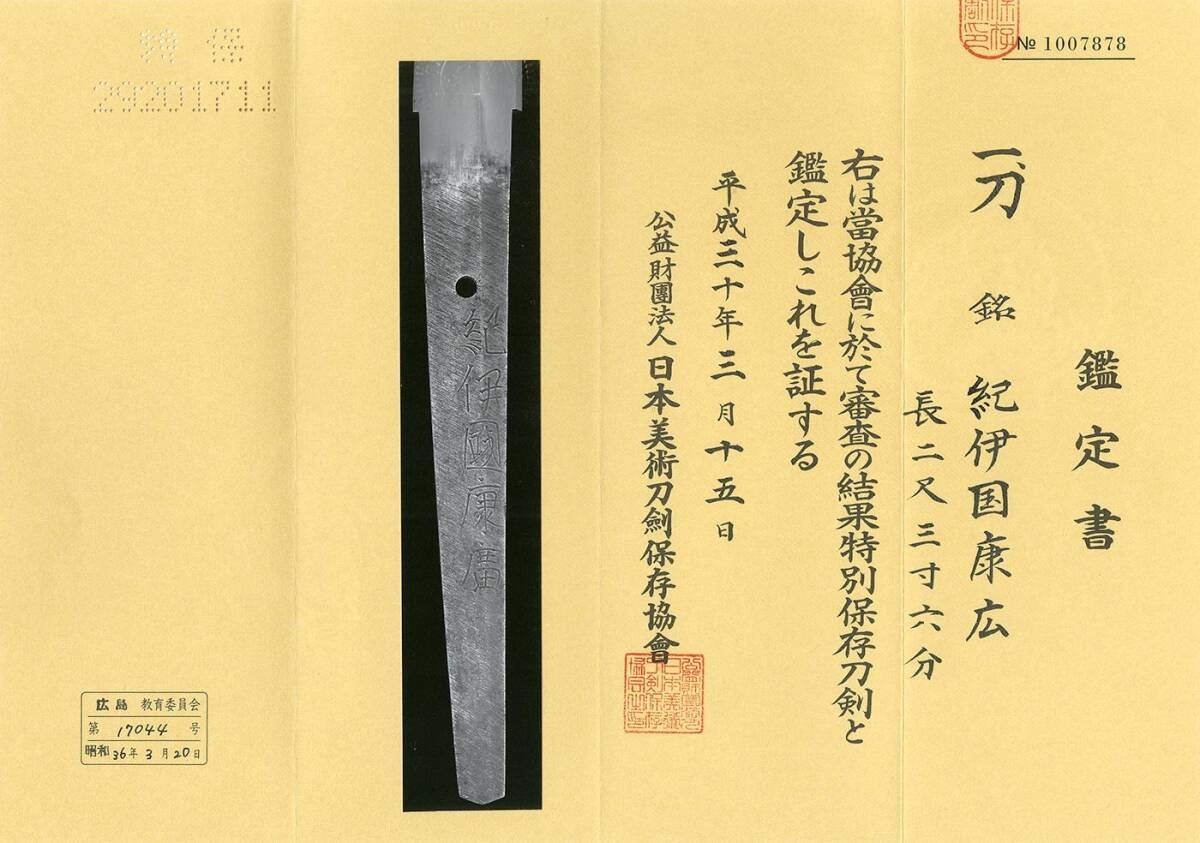 № 1007878
鑑定書
一、刀 銘 紀伊国康広
長二尺三寸六分
右は當協會に於て審査の結果特別保存刀剣と
鑑定しこれを証する
平成三十年三月十五日
公益財團法人 日本美術刀劍保存協會
紀伊國康廣
特保
29201711
広島 教育委員会
第 17044 号
昭和 36年 3月 20日